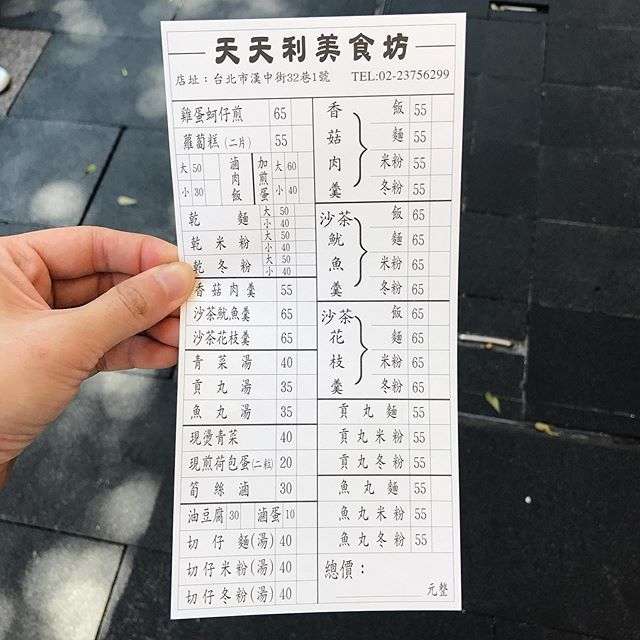 天天利美食坊
店址：台北市漢中街32巷1號 TEL:02-23756299
雞蛋蚵仔煎 65
蘿蔔糕(二片) 55
滷肉飯 大 50 小 30
加煎蛋 大 60 小 40
乾麵 大 50 小 40
乾米粉 大 50 小 40
乾冬粉 大 50 小 40
香菇肉羹 55
沙茶魷魚羹 65
沙茶花枝羹 65
青菜湯 40
貢丸湯 35
魚丸湯 35
現燙青菜 40
現煎荷包蛋(二粒) 20
筍絲滷 30
油豆腐 30 滷蛋 10
切仔麵(湯) 40
切仔米粉(湯) 40
切仔冬粉(湯) 40
香菇肉羹
飯 55
麵 55
米粉 55
冬粉 55
沙茶魷魚羹
飯 65
麵 65
米粉 65
冬粉 65
沙茶花枝羹
飯 65
麵 65
米粉 65
冬粉 65
貢丸麵 55
貢丸米粉 55
貢丸冬粉 55
魚丸麵 55
魚丸米粉 55
魚丸冬粉 55
總價：
元整